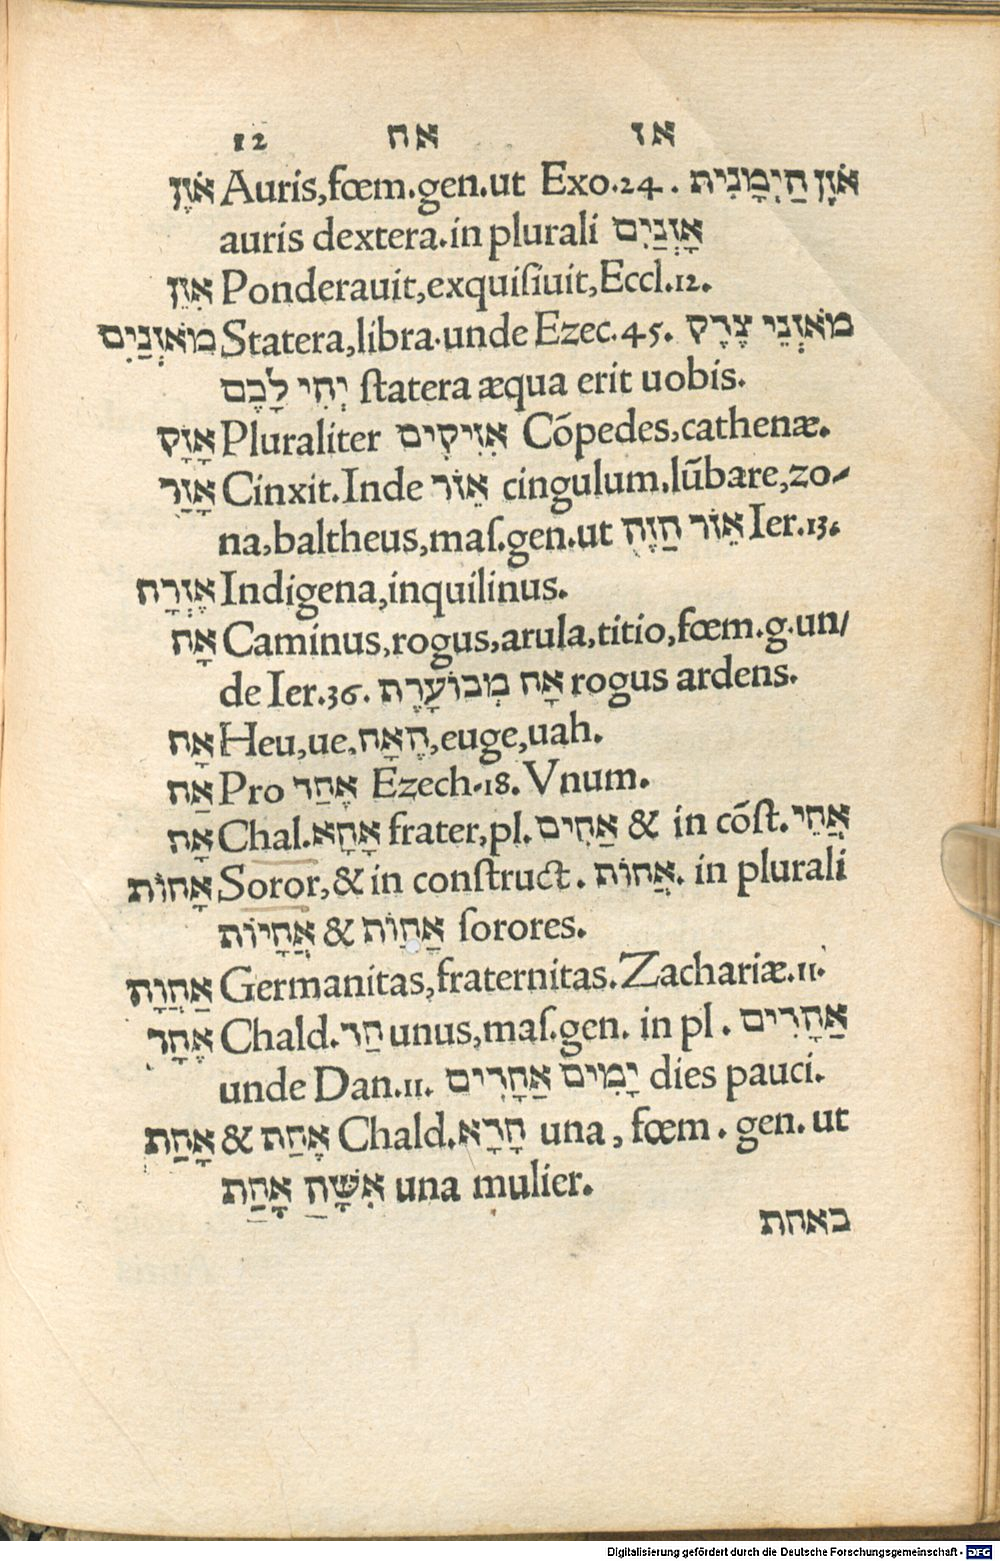 12 אח אז
אֹזֶן Auris,fœm.gen.ut Exo.24. אֹזֶן חַיְמָנִית
auris dextera.in plurali אָזְנַיִם
אִזֵן Ponderauit,exquiſiuit,Eccl.12.
מֹאזְנַיִם Statera,libra.unde Ezec.45. מֹאזְנֵי צֶדֶק
יְהִי לָכֶם ſtatera æqua erit uobis.
אָזָק Pluraliter אִזִיקִים Cōpedes,cathenæ.
אָזַר Cinxit.Inde אֵזֹר cingulum.lūbare,zo-
na,baltheus,maſ.gen.ut אֵזֹר הַזֶה Ier.13.
אֶזְרָח Indigena,inquilinus.
אָח Caminus,rogus,arula,titio,fœm.g.un/
de Ier.36. אָח מְבוֹעָרֶת rogus ardens.
אָח Heu,ue,הֶאָח,euge,uah.
אַח Pro אֶחַד Ezech.18. Vnum.
אָח Chal.אָחָא frater,pl. אַחִים & in cōſt. אֲחֵי
אָחוֹת Soror,& in conſtruct. אֲחוֹת. in plurali
אֲחָיוֹת & אַחְוֹת ſorores.
אַחֲוָה Germanitas,fraternitas.Zachariæ.11.
אֶחָד Chald.חַד unus,maſ.gen. in pl. אַחָדִים
unde Dan.11. יָמִים אַחָדִים dies pauci.
אָחַת & אֶחַת Chald.חָדָא una, fœm. gen. ut
אִשָּׁה אַחַת una mulier.
באחת
Digitalisierung gefördert durch die Deutsche Forschungsgemeinschaft - DFG